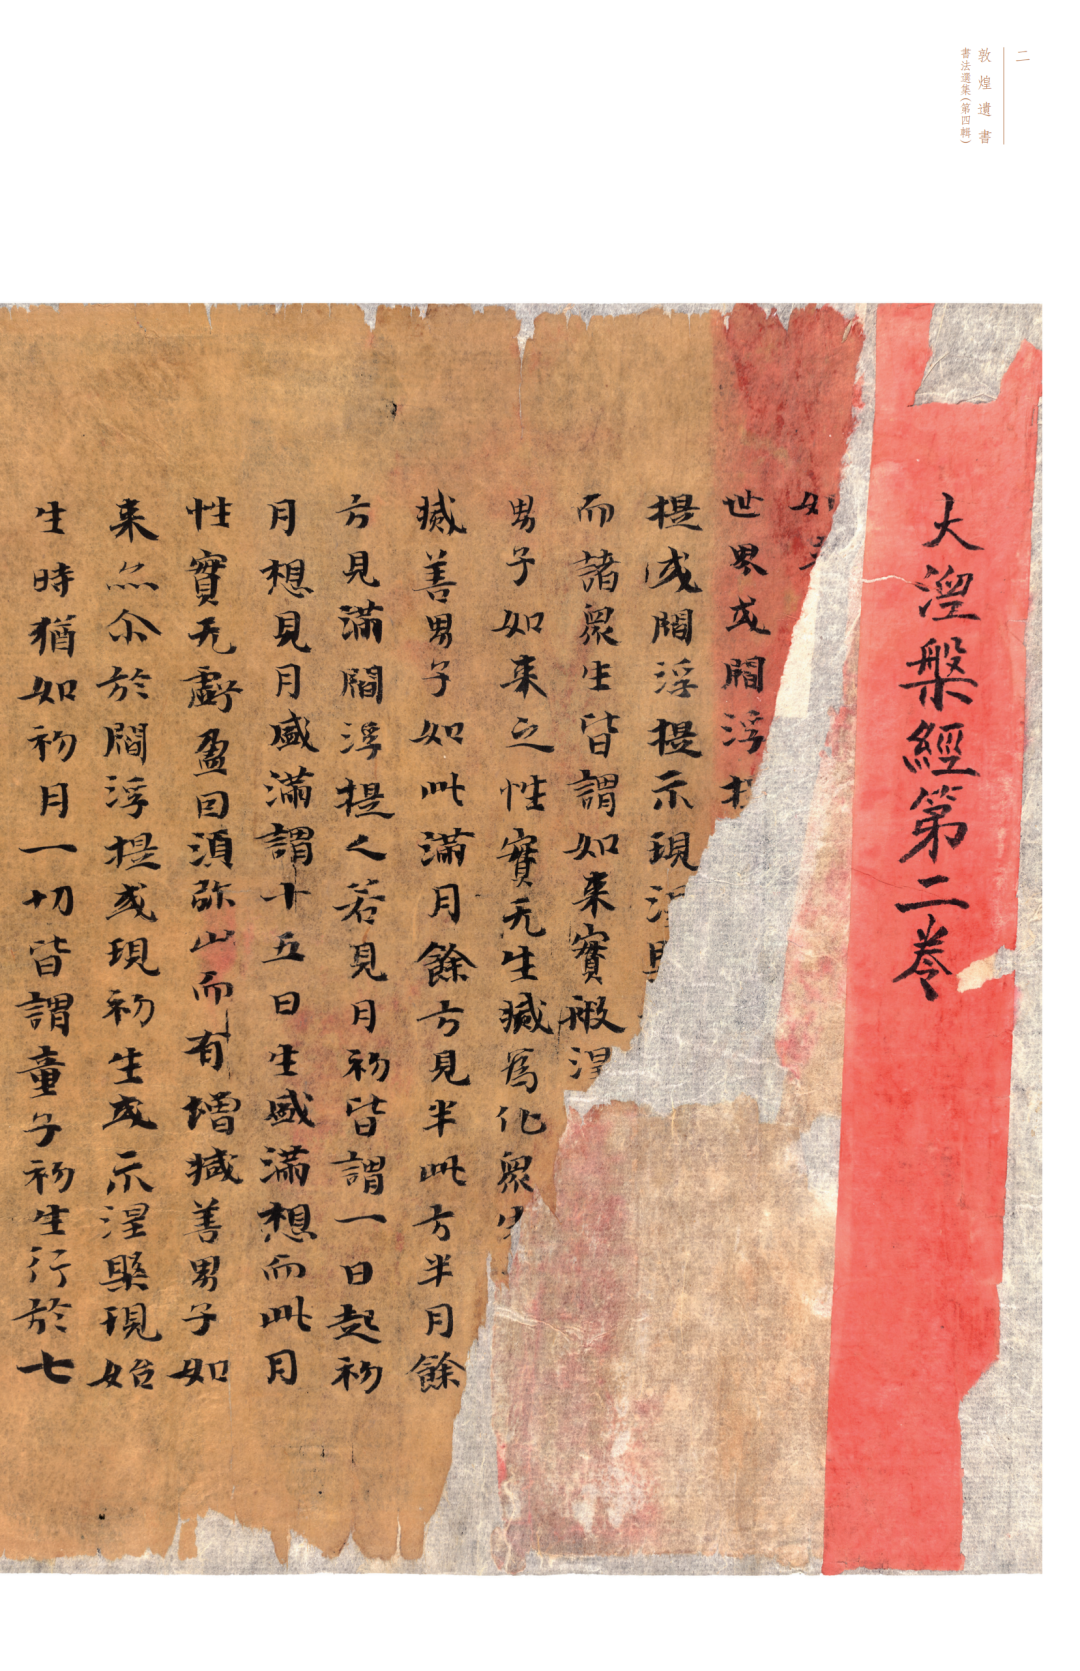 二
敦煌遺書
書法選集(第四輯)
大涅槃經第二卷
如
世界或閻浮提
提或閻浮提示現涅
而諸眾生皆謂如来實般涅
男子如来之性實无生滅為化眾生
滅善男子如此滿月餘方見半此方半月餘
方見滿閻浮提人若見月初皆謂一日起初
月想見月盛滿謂十五日生盛滿想而此月
性實无虧盈因須弥山而有增減善男子如
来亦尒於閻浮提或現初生或示涅槃現始
生時猶如初月一切皆謂童子初生行於七